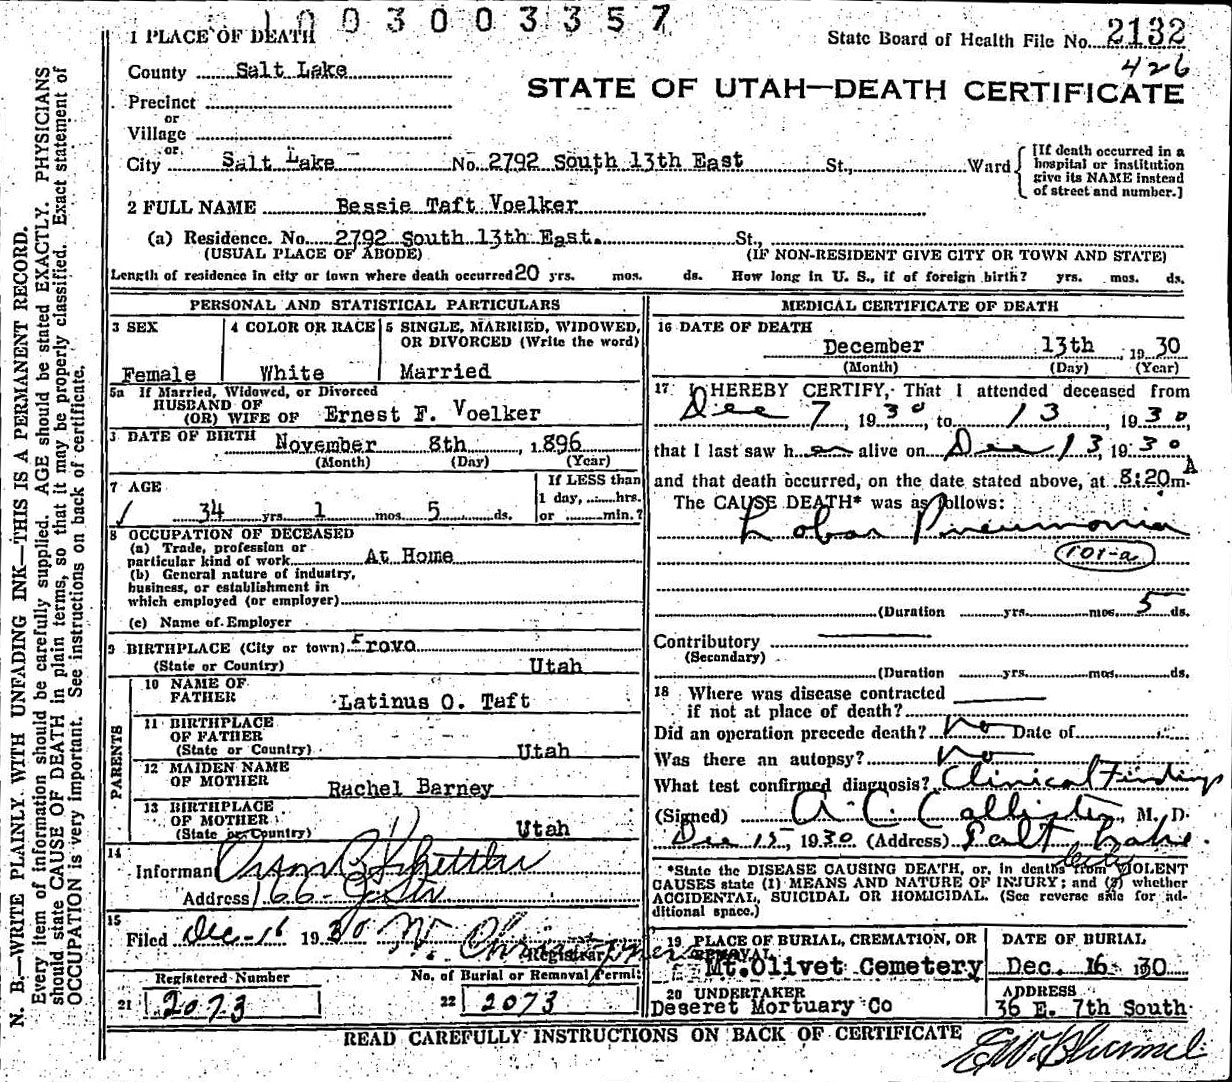 1003003357
1 PLACE OF DEATH
State Board of Health File No. 2132
426
County Salt Lake
STATE OF UTAH—DEATH CERTIFICATE
Precinct
or
Village
or
City Salt Lake No. 2792 South 13th East St., Ward
[If death occurred in a hospital or institution give its NAME instead of street and number.]
2 FULL NAME Bessie Taft Voelker
(a) Residence. No. 2792 South 13th East. St.,
(USUAL PLACE OF ABODE) (IF NON-RESIDENT GIVE CITY OR TOWN AND STATE)
Length of residence in city or town where death occurred 20 yrs. mos. ds. How long in U. S., if of foreign birth? yrs. mos. ds.
PERSONAL AND STATISTICAL PARTICULARS
3 SEX
Female
4 COLOR OR RACE
White
5 SINGLE, MARRIED, WIDOWED, OR DIVORCED (Write the word)
Married
5a If Married, Widowed, or Divorced
HUSBAND OF
(OR) WIFE OF Ernest F. Voelker
DATE OF BIRTH November 8th, 1896
(Month) (Day) (Year)
7 AGE
34 yrs. 1 mos. 5 ds.
If LESS than
1 day, hrs.
or min.?
8 OCCUPATION OF DECEASED
(a) Trade, profession or
particular kind of work At Home
(b) General nature of industry,
business, or establishment in
which employed (or employer)
(c) Name of Employer
9 BIRTHPLACE (City or town) Provo
(State or Country) Utah
PARENTS
10 NAME OF
FATHER Latinus O. Taft
11 BIRTHPLACE
OF FATHER
(State or Country) Utah
12 MAIDEN NAME
OF MOTHER Rachel Barney
13 BIRTHPLACE
OF MOTHER
(State or Country) Utah
14
Informan
Address 166
15
Filed Dec-16 1930
Registrar
Registered Number
21 2073
No. of Burial or Removal Permit
22 2073
MEDICAL CERTIFICATE OF DEATH
16 DATE OF DEATH
December 13th, 1930
(Month) (Day) (Year)
17 I HEREBY CERTIFY, That I attended deceased from
Dec 7, 1930, to 13 1930
that I last saw h er alive on Dec 13, 1930
and that death occurred, on the date stated above, at 8:20 A m.
The CAUSE DEATH* was as follows:
Lobar Pneumonia
101-a
(Duration yrs. mos. 5 ds.
Contributory
(Secondary)
(Duration yrs. mos. ds.
18 Where was disease contracted
if not at place of death?
Did an operation precede death? No Date of
Was there an autopsy? No
What test confirmed diagnosis? Clinical Findings
(Signed) A. C. Callister, M. D.
Dec 15, 1930 (Address) Salt Lake
*State the DISEASE CAUSING DEATH, or, in deaths from VIOLENT
CAUSES state (1) MEANS AND NATURE OF INJURY; and (2) whether
ACCIDENTAL, SUICIDAL OR HOMICIDAL. (See reverse side for ad-
ditional space.)
19 PLACE OF BURIAL, CREMATION, OR
REMOVAL
Mt. Olivet Cemetery
DATE OF BURIAL
Dec. 16 30
20 UNDERTAKER
Deseret Mortuary Co
ADDRESS
36 E. 7th South
READ CAREFULLY INSTRUCTIONS ON BACK OF CERTIFICATE
N. B.—WRITE PLAINLY. WITH UNFADING INK—THIS IS A PERMANENT RECORD.
Every item of information should be carefully supplied. AGE should be stated EXACTLY. PHYSICIANS
should state CAUSE OF DEATH in plain terms, so that it may be properly classified. Exact statement of
OCCUPATION is very important. See instructions on back of certificate.